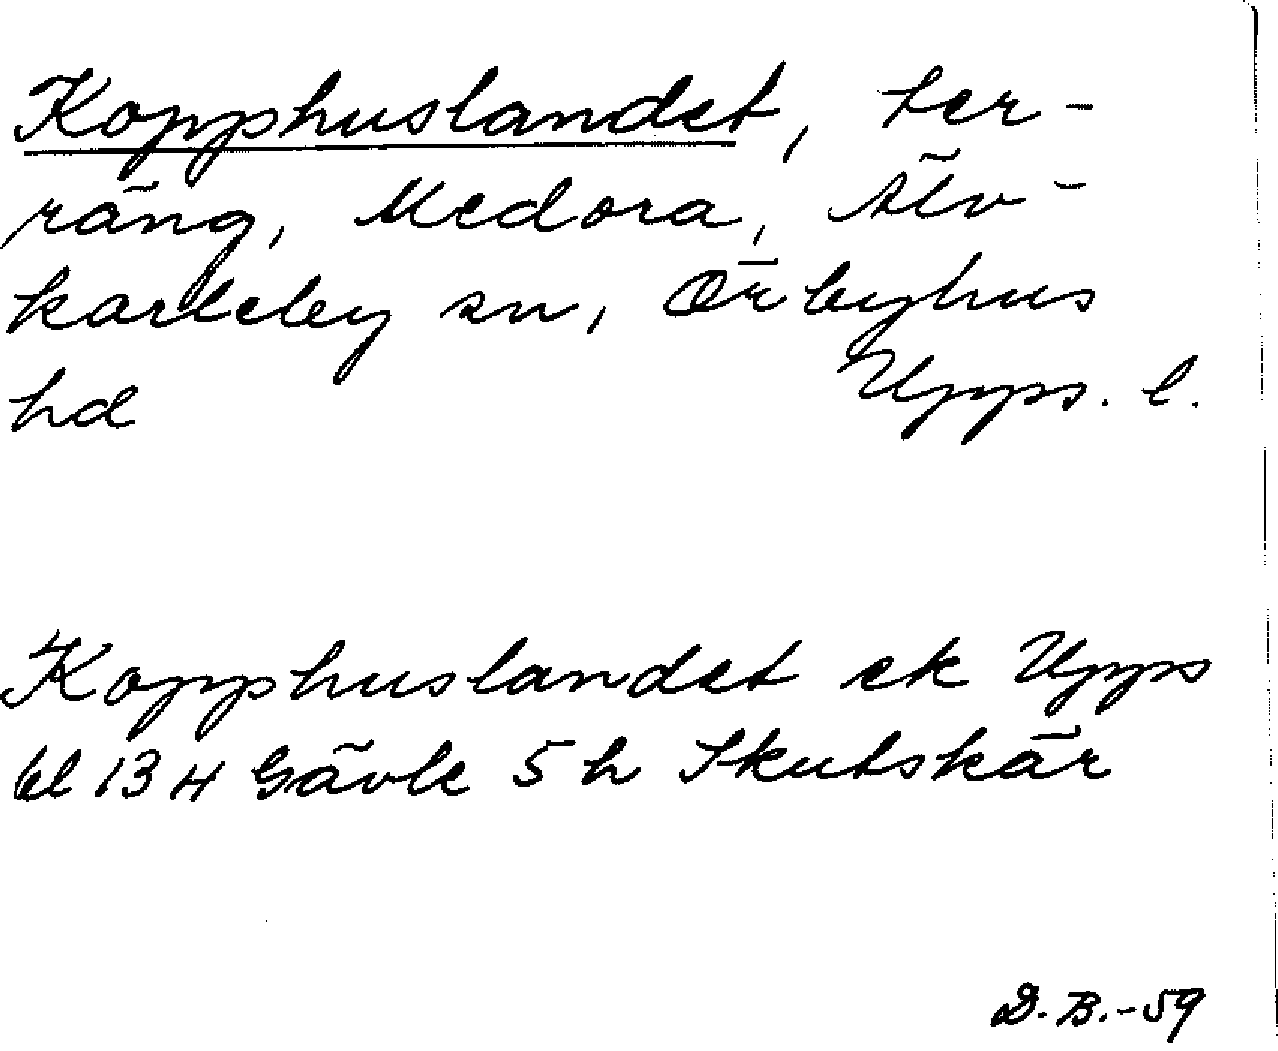 Kopphuslandet, ter-
räng, Medora, Älv-
karleby sn, Örbyhus
hd Upps. l.
Kopphuslandet ek Upps
bl 13 H Gävle 5 h Skutskär
D. B. -59